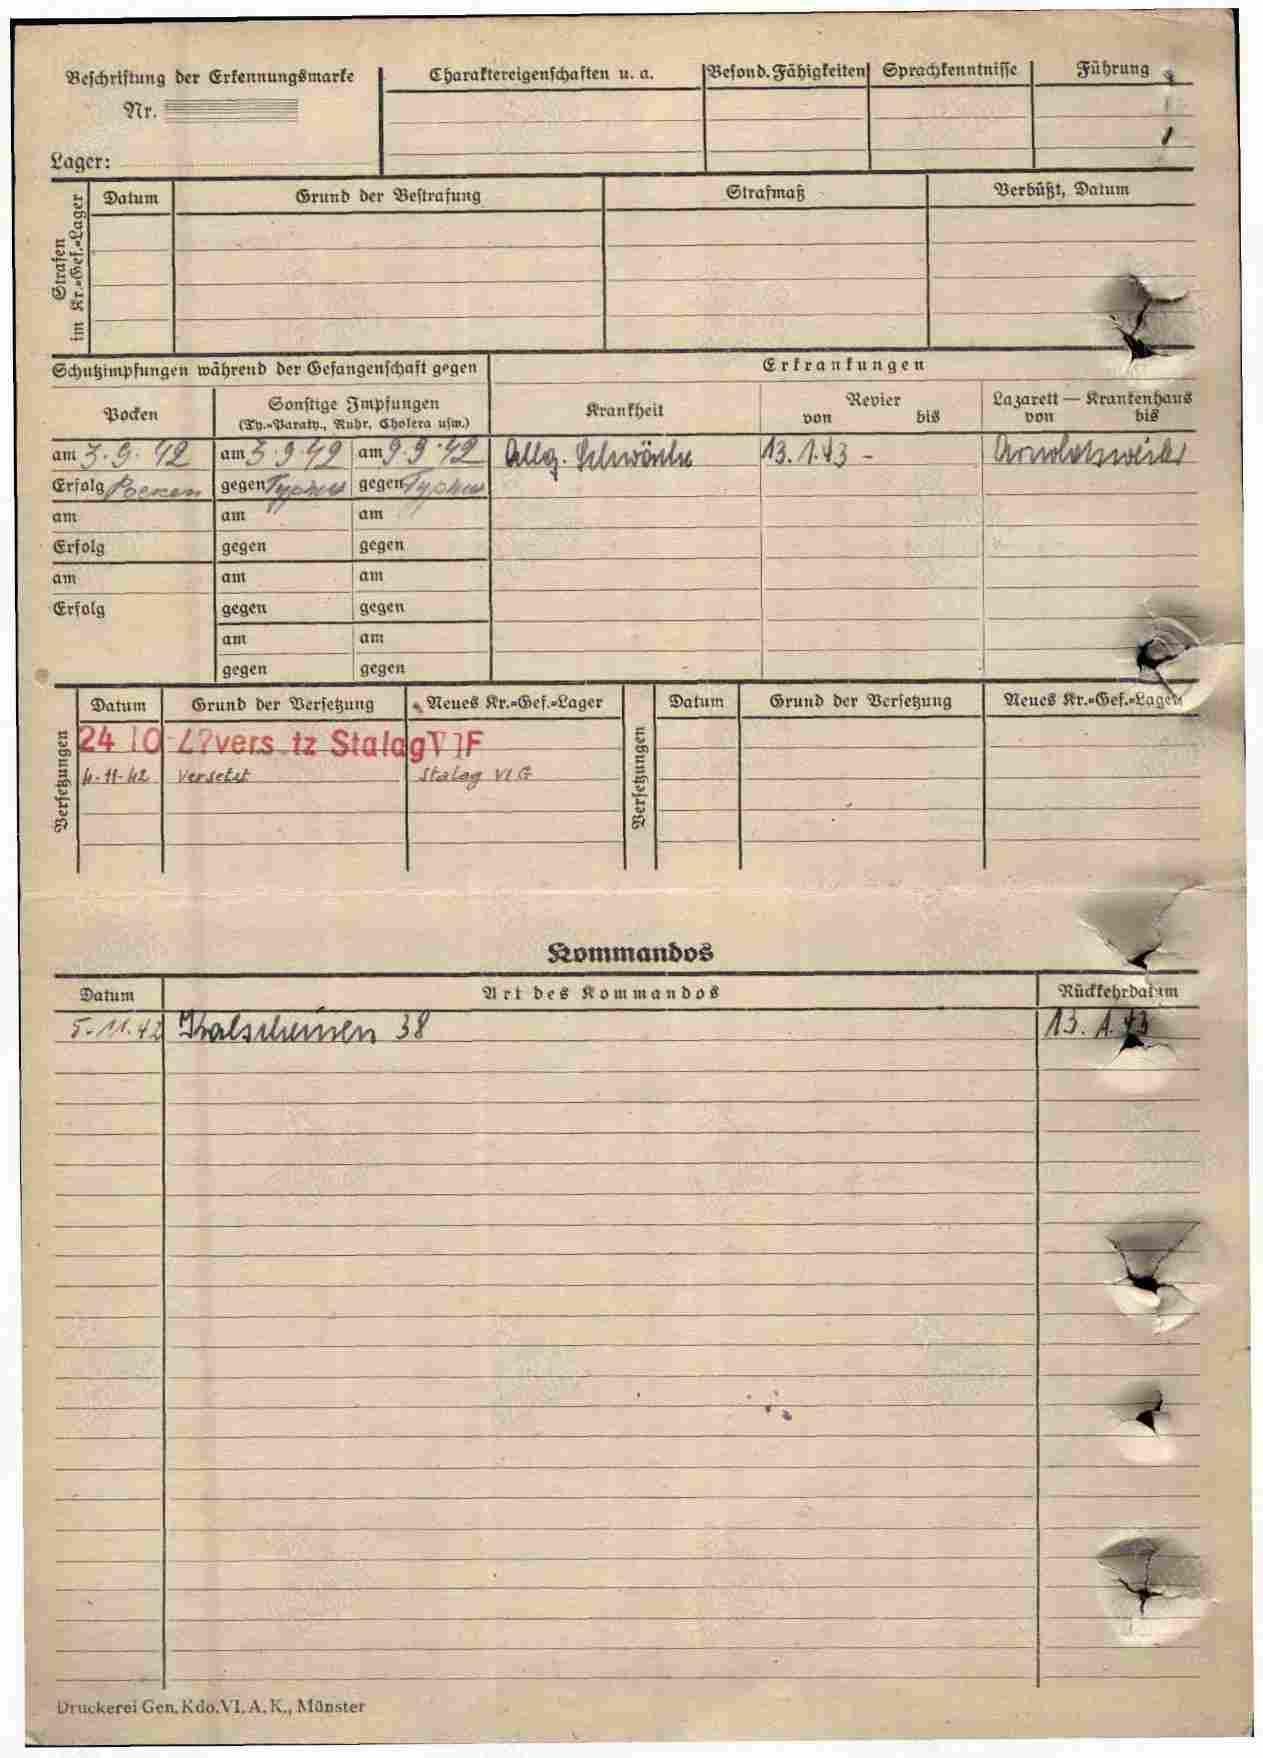 Beschriftung der Erkennungsmarke
Nr.
Lager:
Charaktereigenschaften u. a.
Besond. Fähigkeiten
Sprachkenntnisse
Führung
Strafen
im Kr.=Gef.=Lager
Datum
Grund der Bestrafung
Strafmaß
Verbüßt, Datum
Schutzimpfungen während der Gefangenschaft gegen
Erkrankungen
Pocken
Sonstige Impfungen
(Ty.=Paraty., Ruhr, Cholera usw.)
Krankheit
Revier
von bis
Lazarett — Krankenhaus
von bis
am 3.9.42 am 3.9.42 am 9.9.42 Allg. Schwäche 13.1.43 - Arnoldsweiler
Erfolg Pocken gegen Typhus gegen Typhus
am am am
Erfolg gegen gegen
am am am
Erfolg gegen gegen
am am
gegen gegen
Versetzungen
Datum Grund der Versetzung Neues Kr.=Gef.=Lager
24 10 vers tz Stalag VI F
4-11-42 versetzt Stalag VI G
Versetzungen
Datum Grund der Versetzung Neues Kr.=Gef.=Lager
Kommandos
Datum Art des Kommandos Rückkehrdatum
5.-11.42 38 13.1.43
Druckerei Gen. Kdo. VI. A. K., Münster